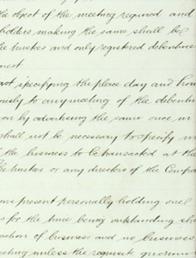 the object of the meeting required and
holders making the same shall be
the trustees and only registered debenture
meet
specifying the place day and hour
ously to any meeting of the debentu
or by advertising the same once in
shall not be necessary to specify in
the business to be transacted at the
the trustees or any directors of the Compa
present personally holding one
for the time being outstanding sha
action of business and no business
eting unless the requisite quorum